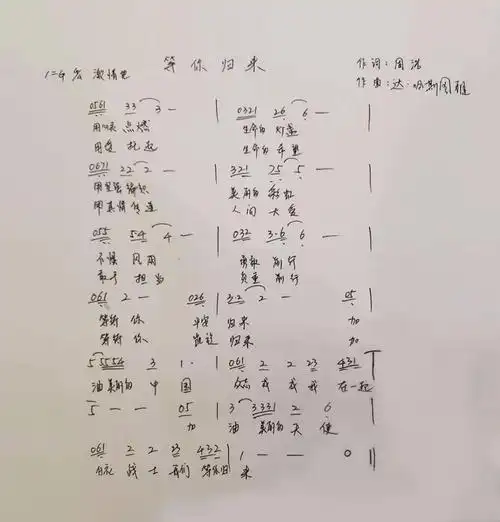 等你归来
1=G 激情地
作词:周浩
作曲:达·哈斯图雅
0561 33 3 — | 0321 26 6 — |
用心点燃 生命的灯盏
用爱托起 生命的希望
0671 22 2 — | 321 25 5 — |
用 美丽的彩虹
用真情传递 人间大爱
055 54 4 — | 032 3·6 6 — |
不惧风雨 勇敢前行
敢于担当 负重前行
061 2 — 026 | 3·2 2 — 05 |
等待你 平安归来 加
等待你 归来 加
55554 3 1· | 061 2 2 23 431 |
油美丽的中国 在一起
5 — — 05 | 3 3331 2 6
加 油美丽的天使
061 2 2 23 432 | 1 — — 0 ||
白衣战士我们等你归来